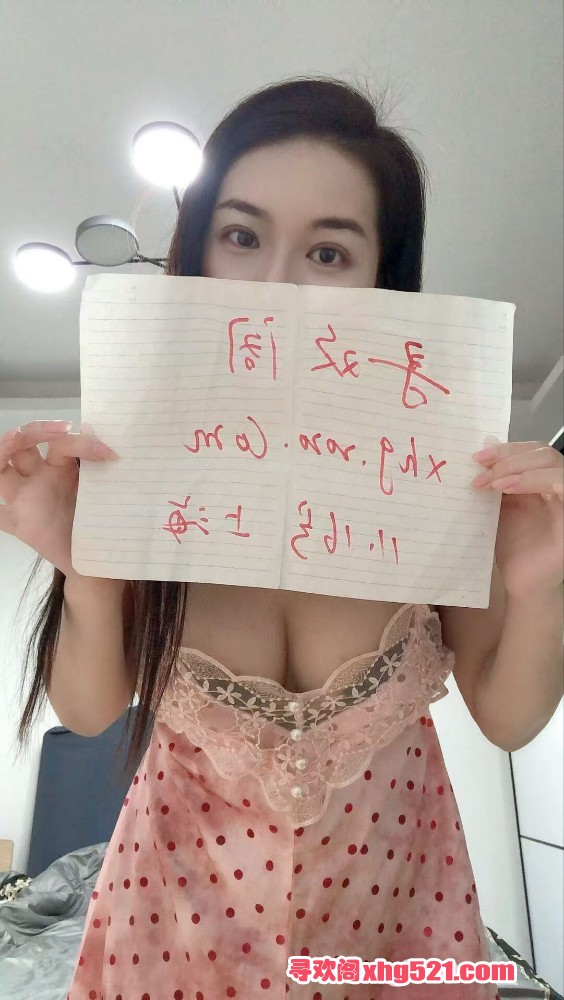 寻欢阁
xhg.vov.com
11.16号 上海
寻欢阁xhg521.com